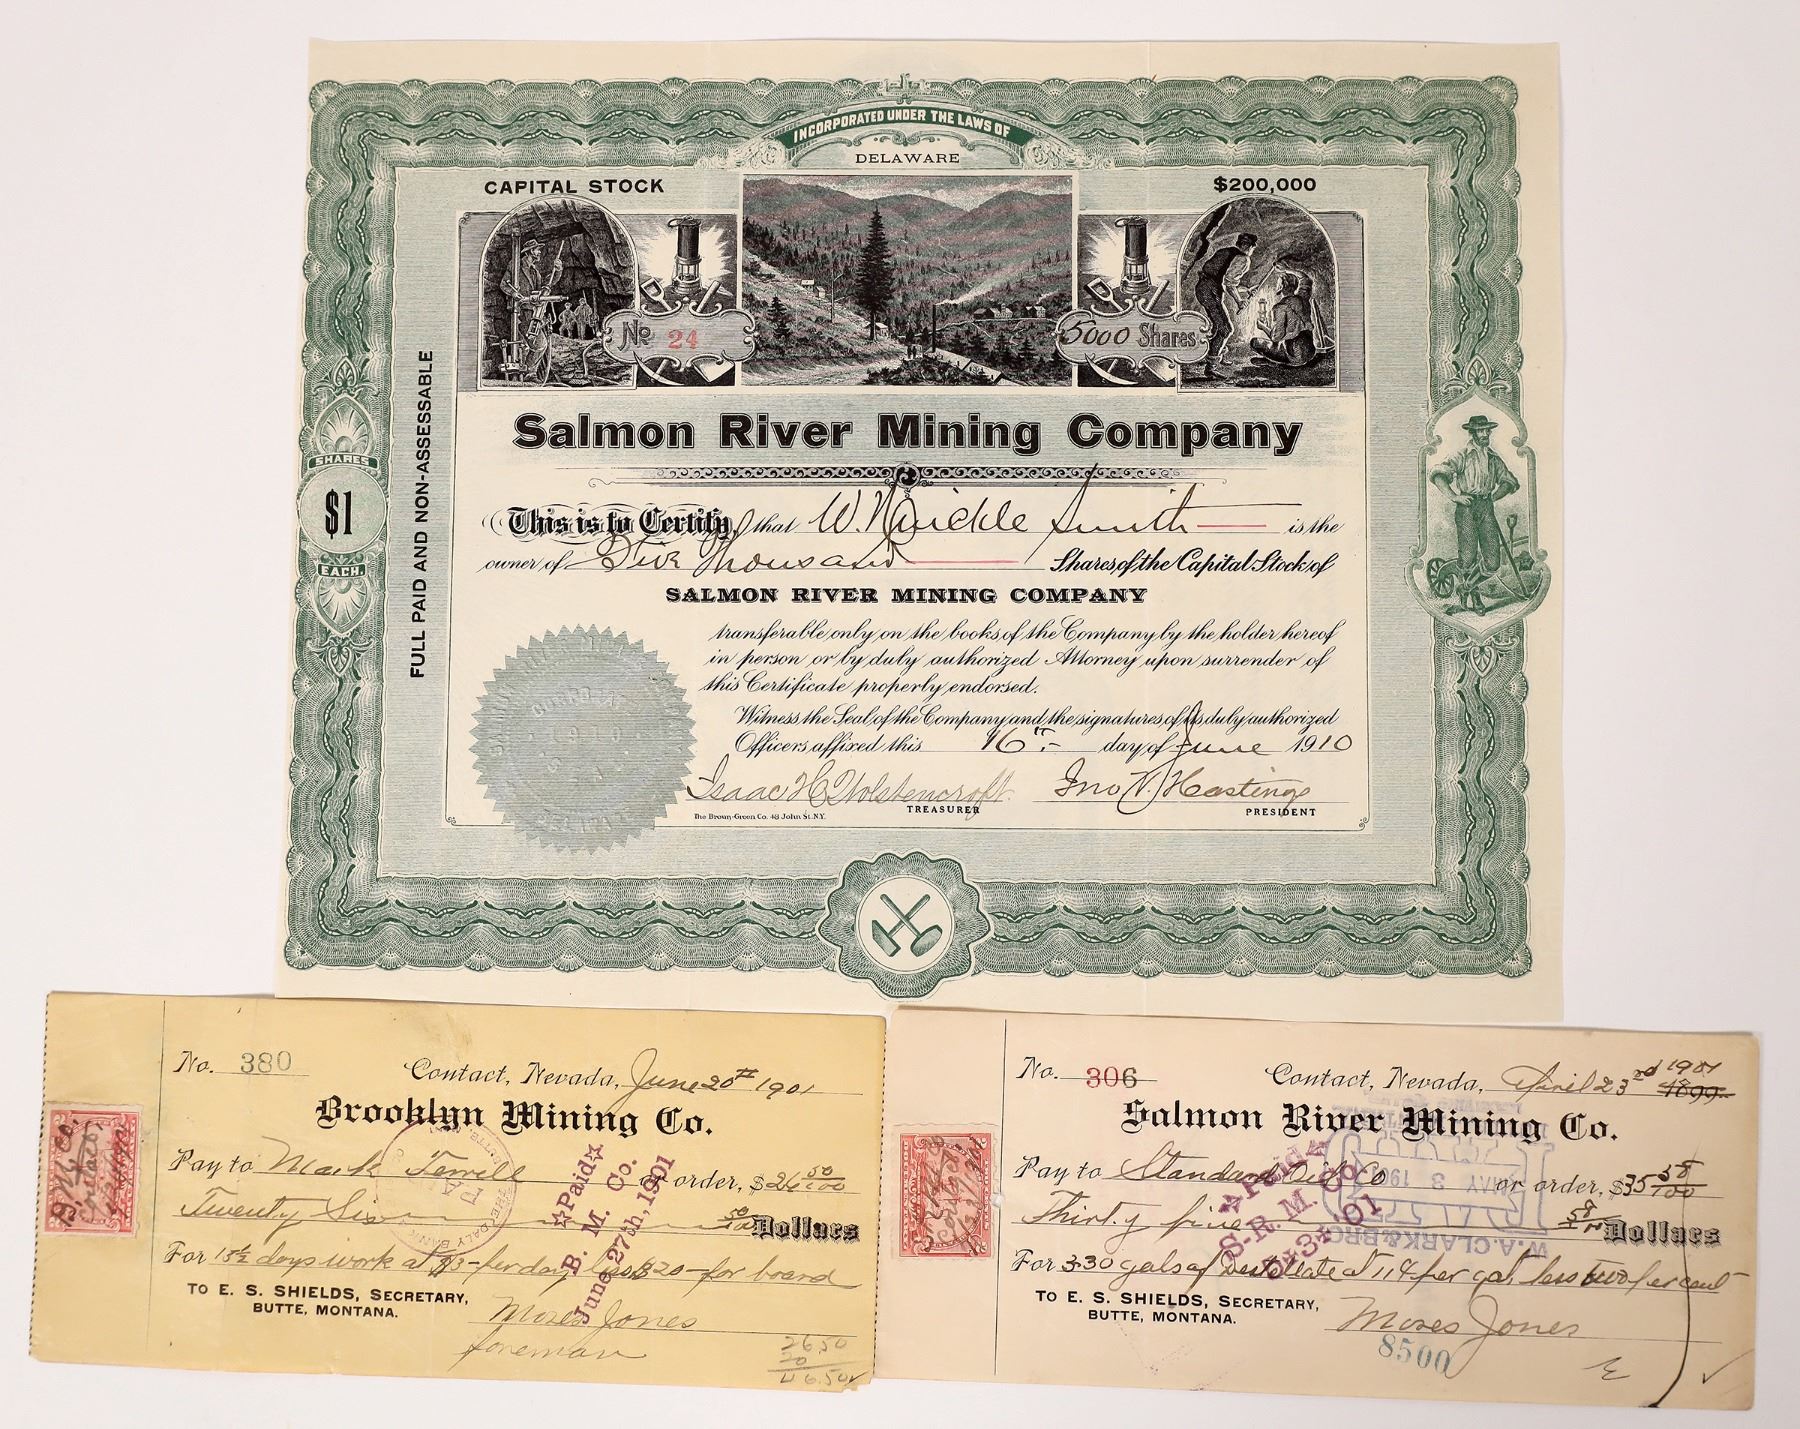 INCORPORATED UNDER THE LAWS OF
DELAWARE
CAPITAL STOCK $200,000
No 24 5000 Shares
FULL PAID AND NON-ASSESSABLE
SHARES
$1
EACH
Salmon River Mining Company
This is to Certify, that W. Kwickle Smith is the
owner of Five Thousand Shares of the Capital Stock of
SALMON RIVER MINING COMPANY
transferable only on the books of the Company by the holder hereof
in person or by duly authorized Attorney upon surrender of
this Certificate properly endorsed.
Witness the Seal of the Company and the signatures of its duly authorized
Officers affixed this 16th day of June 1910
Isaac H Wolstencroft Jno V. Hastings
TREASURER PRESIDENT
The Broun-Green Co. 48 John St. N.Y.
No. 380 Contact, Nevada, June 20th 1901
Brooklyn Mining Co.
Pay to Mark Terrill or order, $26 50/100
Twenty Six 50/100 Dollars
For 15½ days work at $3- per day less $20- for board
TO E. S. SHIELDS, SECRETARY,
BUTTE, MONTANA.
Moses Jones
foreman
26.50
20
46.50
☆Paid☆
B. M. Co.
June 27th, 1901
No. 306 Contact, Nevada, April 23rd 1901 1899
Salmon River Mining Co.
Pay to Standard Oil Co or order, $35 58/100
Thirty five 58/100 Dollars
For 330 gals of Destillate at 11¢ per gal less two per cent
TO E. S. SHIELDS, SECRETARY,
BUTTE, MONTANA.
Moses Jones
8500
☆Paid☆
S-R. M. Co
5+3+'01
W. A. CLARK & BRO
MAY 3 1901